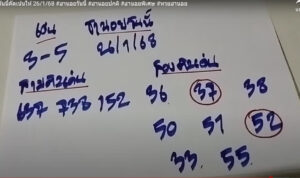 วันนี้คัดเน้นให้ 26/1/68 #ฮานอยวันนี้ #ฮานอยปกติ #ฮานอยพิเศษ #หวยฮานอย
เด่น ฮานอยวันนี้
3-5 26/1/68
สามตัวเด่น สองตัวเด่น
637 738 152 36 37 38
50 51 52
33. 55.